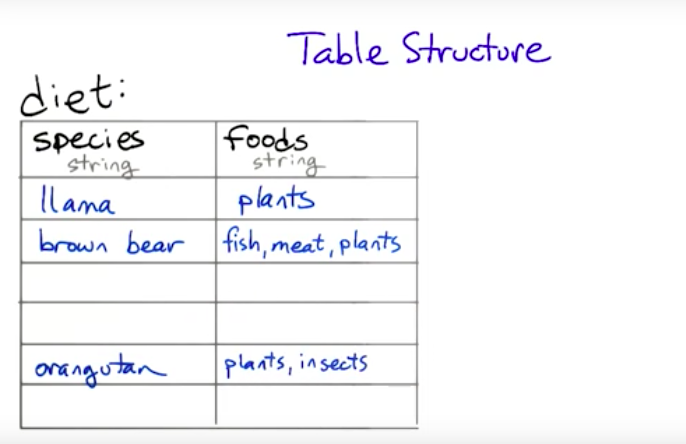 Table Structure
diet:
species foods
string string
llama plants
brown bear fish, meat, plants
orangutan plants, insects